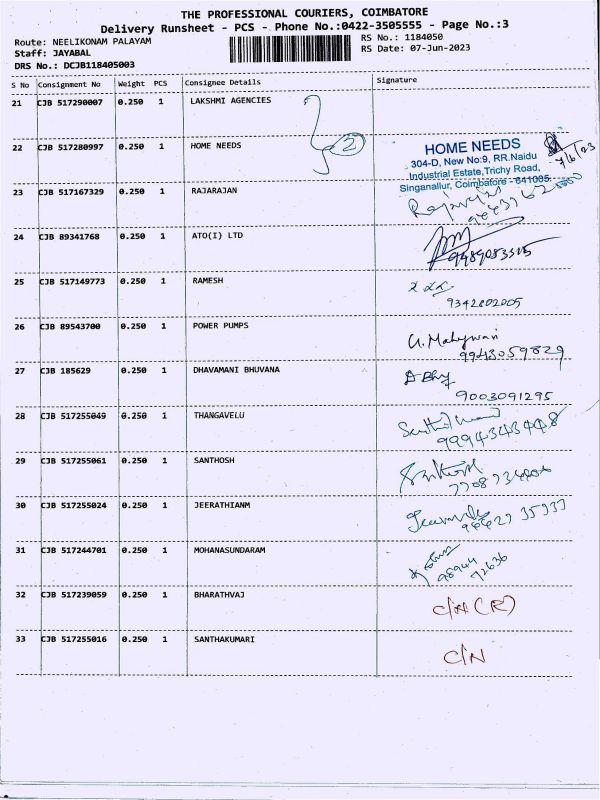 THE PROFESSIONAL COURIERS, COIMBATORE
Delivery Runsheet - PCS - Phone No.:0422-3505555 - Page No.:3
Route: NEELIKONAM PALAYAM RS No.: 1184050
Staff: JAYABAL RS Date: 07-Jun-2023
DRS No.: DCJB118405003
S No Consignment No Weight PCS Consignee Details Signature
21 CJB 517290007 0.250 1 LAKSHMI AGENCIES
22 CJB 517280997 0.250 1 HOME NEEDS 2
HOME NEEDS
304-D, New No:9, RR.Naidu
Industrial Estate,Trichy Road,
Singanallur, Coimbatore - 641005.
7/6/23
23 CJB 517167329 0.250 1 RAJARAJAN
24 CJB 89341768 0.250 1 ATO(I) LTD
25 CJB 517149773 1 0.250 1 RAMESH
9342802005
26 CJB 89543700 0.250 1 POWER PUMPS
99430 59829
27 CJB 185629 0.250 1 DHAVAMANI BHUVANA
9003091295
28 CJB 517255049 0.250 1 THANGAVELU
29 CJB 517255061 0.250 1 SANTHOSH
30 CJB 517255024 0.250 1 JEERATHIANM
31 CJB 517244701 0.250 1 MOHANASUNDARAM
98944
72636
32 CJB 517239059 0.250 1 BHARATHVAJ C/N (R)
33 CJB 517255016 0.250 1 SANTHAKUMARI C/N